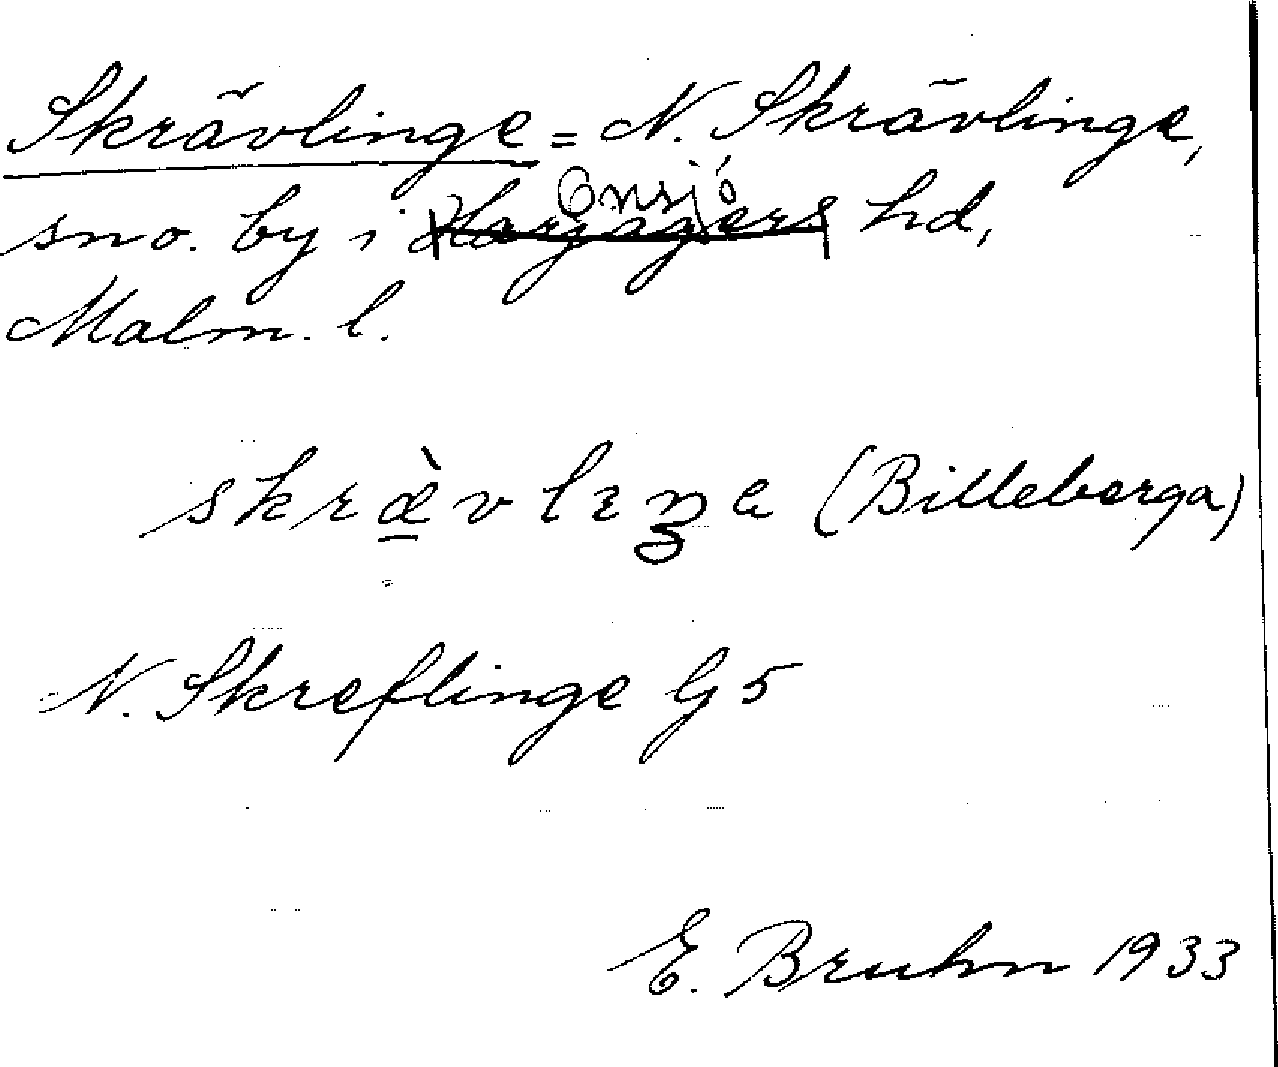 Skrävlinge = N. Skrävlinge,
sno. by i Harjagers Onsjö hd,
Malm. l.
skræ̠̀vlɪŋɐ (Billeberga)
N. Skreflinge G 5
E. Bruhn 1933